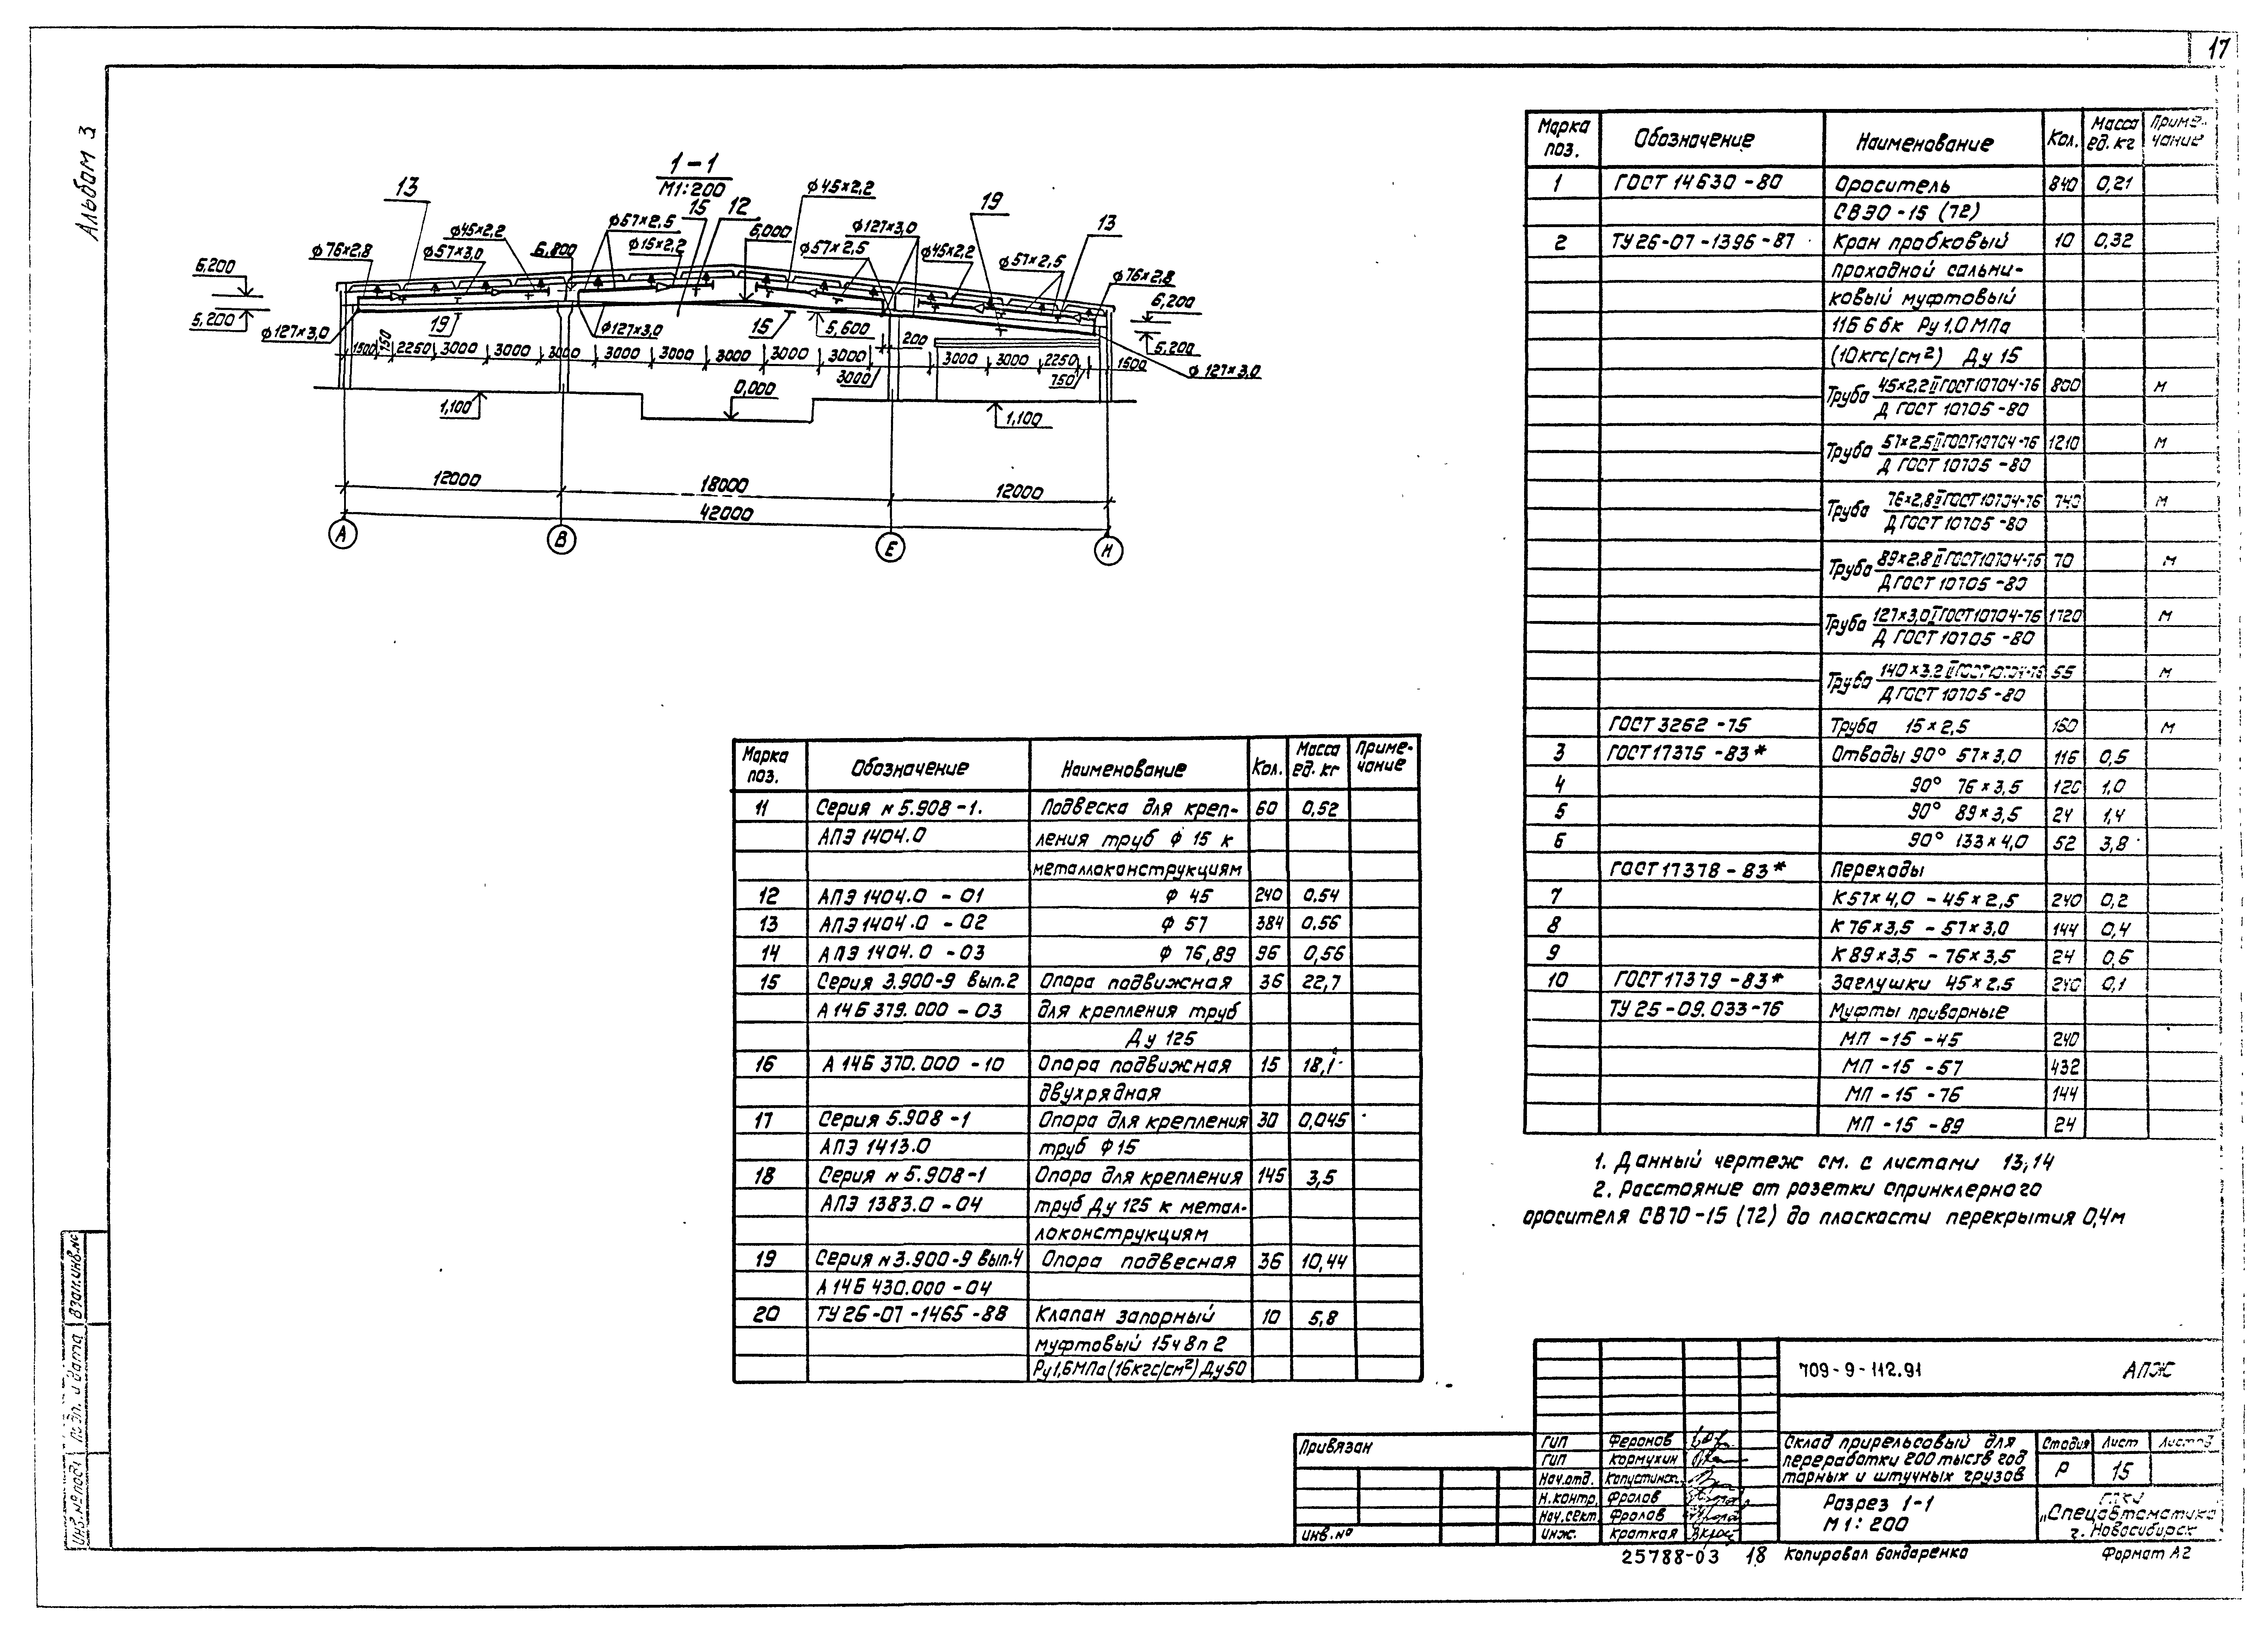 17
Альбом 3
1-1
М1:200
13
15
12
ϕ45×2,2
19
13
ϕ76×2,8
ϕ45×2,2
ϕ57×3,0
6,800
ϕ57×2,5
ϕ15×2,2
6,000
ϕ127×3,0
ϕ57×2,5
ϕ45×2,2
ϕ57×2,5
ϕ76×2,8
6,200
5,200
ϕ127×3,0
19
ϕ127×3,0
15
5,600
200
6,200
5,200
ϕ127×3,0
1500 750 2250 3000 3000 3000 3000 3000 3000 3000 3000 3000 3000 3000 2250 750 1500
1,100
0,000
1,100
12000 18000 12000
42000
А В Е Н
Марка поз. Обозначение Наименование Кол. Масса ед. кг Приме-чание
1 ГОСТ 14630-80 Ороситель 840 0,21
СВЭО-15 (72)
2 ТУ 26-07-1396-87 Кран пробковый 10 0,32
проходной сальни-
ковый муфтовый
11Б 6 бк Ру 1,0 МПа
(10кгс/см²) Ду 15
Труба 45×2,2 II ГОСТ 10704-76 800 м
Д ГОСТ 10705-80
Труба 57×2,5 II ГОСТ 10704-76 1210 м
Д ГОСТ 10705-80
Труба 76×2,8 II ГОСТ 10704-76 740 м
Д ГОСТ 10705-80
Труба 89×2.8 II ГОСТ 10704-76 70 м
Д ГОСТ 10705-80
Труба 127×3,0 I ГОСТ 10704-76 1720 м
Д ГОСТ 10705-80
Труба 140×3.2 II ГОСТ 10704-76 55 м
Д ГОСТ 10705-80
ГОСТ 3262-75 Труба 15×2,5 160 м
3 ГОСТ 17375-83* Отводы 90° 57×3,0 116 0,5
4 90° 76×3,5 120 1,0
5 90° 89×3,5 24 1,4
6 90° 133×4,0 52 3,8
ГОСТ 17378-83* Переходы
7 К57×4,0-45×2,5 240 0,2
8 К76×3,5-57×3,0 144 0,4
9 К89×3,5-76×3,5 24 0,6
10 ГОСТ 17379-83* Заглушки 45×2.5 240 0,1
ТУ 25-09.033-76 Муфты приварные
МП-15-45 240
МП-15-57 432
МП-15-76 144
МП-15-89 24
Марка поз. Обозначение Наименование Кол. Масса ед. кг Приме-чание
11 Серия н 5.908-1. Подвеска для креп- 60 0,52
АПЭ 1404.0 ления труб ϕ 15 к
металлоконструкциям
12 АПЭ 1404.0 - 01 ϕ 45 240 0.54
13 АПЭ 1404.0 - 02 ϕ 57 384 0.56
14 АПЭ 1404.0 - 03 ϕ 76,89 96 0,56
15 Серия 3.900-9 вып.2 Опора подвижная 36 22,7
А 14Б 379.000 - 03 для крепления труб
Ду 125
16 А 14Б 370.000 - 10 Опора подвижная 15 18,1
двухрядная
17 Серия 5.908-1 Опора для крепления 30 0,045
АПЭ 1413.0 труб ϕ15
18 Серия н 5.908-1 Опора для крепления 145 3,5
АПЭ 1383.0-04 труб Ду 125 к метал-
локонструкциям
19 Серия н 3.900-9 вып.4 Опора подвесная 36 10,44
А 14Б 430.000-04
20 ТУ 26-07-1465-88 Клапан запорный 10 5,8
муфтовый 15ч 8п 2
Ру1,6МПа (16кгс/см²) Ду50
1. Данный чертеж см. с листами 13,14
2. Расстояние от розетки спринклерного
оросителя СВ10-15 (72) до плоскости перекрытия 0,4м
Инв.№подл Подп. и дата Взам.инв.№
Привязан
Инв.№
709-9-112.91 АПЖ
ГИП Феронов
ГИП Кормухин
Нач.отд. Капустинск.
Н.контр. Фролов
Нач.сект. Фролов
Инж. Краткая
Склад прирельсовый для
переработки 200 тыс т в год
тарных и штучных грузов
Стадия Лист Листов
Р 15
Разрез 1-1
М 1:200
"Спецавтоматика"
г. Новосибирск
25788-03 18 Копировал Бондаренко Формат А2